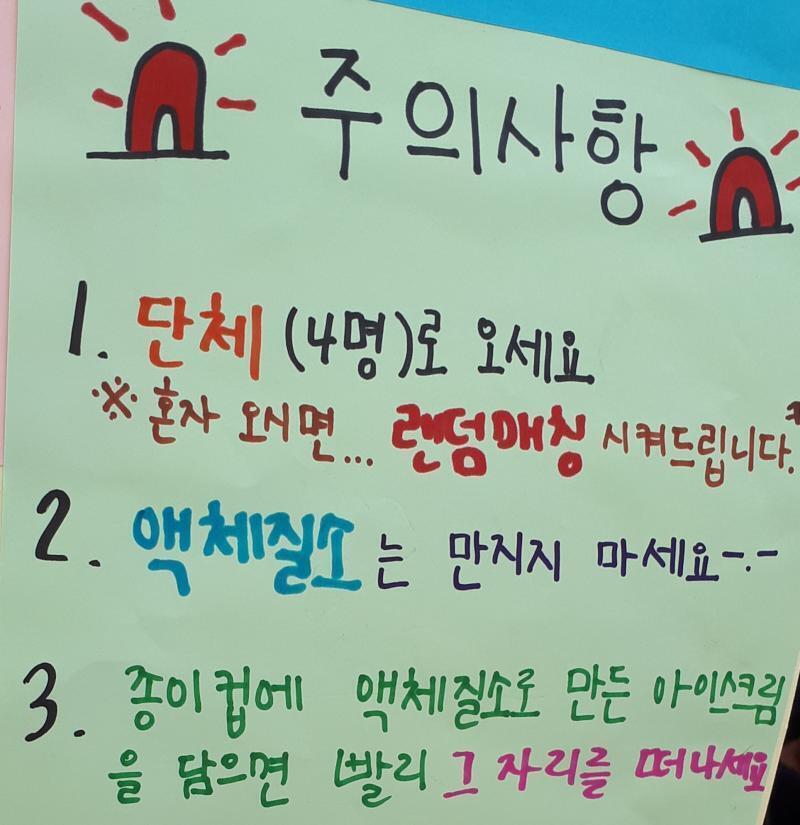 주의사항
1. 단체 (4명)로 오세요
※ 혼자 오시면... 랜덤매칭 시켜드립니다.
2. 액체질소는 만지지 마세요-.-
3. 종이컵에 액체질소로 만든 아이스크림
을 담으면 빨리 그 자리를 떠나세요